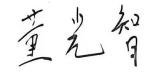 董光智